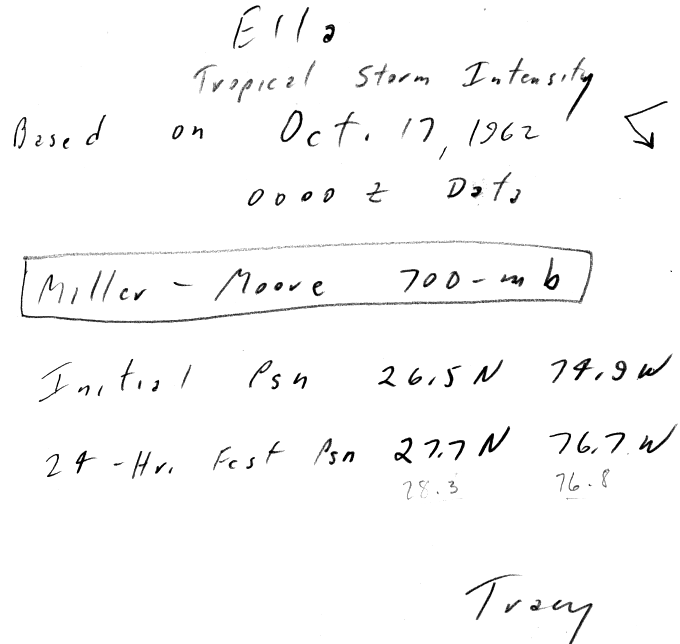 Ella
Tropical Storm Intensity
Based on Oct. 17, 1962
0000 Z Data
Miller - Moore 700-mb
Initial Psn 26.5 N 74.9 W
24-Hr. Fcst Psn 27.7 N 76.7 W
28.3 76.8
Tracy